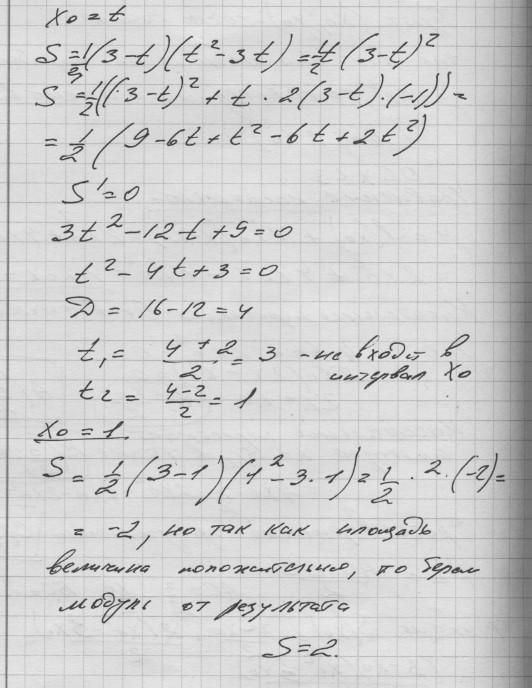 x₀ = t
S = 1/2 (3-t)(t²-3t) = t/2 (3-t)²
S = 1/2((3-t)² + t · 2(3-t)·(-1)) =
= 1/2 (9-6t+t²-6t+2t²)
S' = 0
3t²-12t+9=0
t²-4t+3=0
D = 16-12=4
t₁ = (4+2)/2 = 3 - не входит в
интервал x₀
t₂ = (4-2)/2 = 1
x₀ = 1.
S = 1/2 (3-1)(1²-3·1) = 1/2 · 2·(-2) =
= -2, но так как площадь
величина положительная, то берем
модуль от результата
S=2.